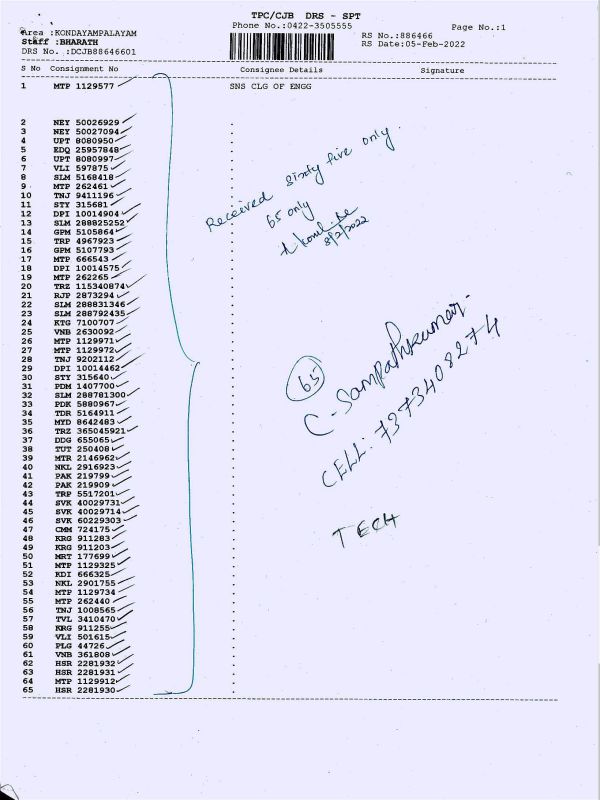 TPC/CJB DRS - SPT
Area :KONDAYAMPALAYAM Phone No.:0422-3505555 Page No.:1
Staff :BHARATH RS No.:886466
DRS No. :DCJB88646601 RS Date:05-Feb-2022
S No Consignment No Consignee Details Signature
1 MTP 1129577 SNS CLG OF ENGG
2 NEY 50026929 :
3 NEY 50027094 :
4 UPT 8080950 :
5 EDQ 25957848 :
6 UPT 8080997 :
7 VLI 597875 :
8 SLM 5168418 :
9 MTP 262461 :
10 TNJ 9411196 :
11 STY 315681 :
12 DPI 10014904 :
13 SLM 288825252 :
14 GPM 5105864 :
15 TRP 4967923 :
16 GPM 5107793 :
17 MTP 666543 :
18 DPI 10014575 :
19 MTP 262265 :
20 TRZ 115340874 :
21 RJP 2873294 :
22 SLM 288831346 :
23 SLM 288792435 :
24 KTG 7100707 :
25 VNB 2630092 :
26 MTP 1129971 :
27 MTP 1129972 :
28 TNJ 9202112 :
29 DPI 10014462 :
30 STY 315640 :
31 PDM 1407700 :
32 SLM 288781300 :
33 PDK 5880967 :
34 TDR 5164911 :
35 MYD 8642483 :
36 TRZ 365045921 :
37 DDG 655065 :
38 TUT 250408 :
39 MTR 2146962 :
40 NKL 2916923 :
41 PAK 219799 :
42 PAK 219909 :
43 TRP 5517201 :
44 SVK 40029731 :
45 SVK 40029714 :
46 SVK 60229303 :
47 CMM 724175 :
48 KRG 911283 :
49 KRG 911203 :
50 MRT 177699 :
51 MTP 1129325 :
52 KDI 666325 :
53 NKL 2901755 :
54 MTP 1129734 :
55 MTP 262440 :
56 TNJ 1008565 :
57 TVL 3410470 :
58 KRG 911255 :
59 VLI 501615 :
60 PLG 44726 :
61 VNB 361808 :
62 HSR 2281932 :
63 HSR 2281931 :
64 MTP 1129912 :
65 HSR 2281930 :
Received sixty five only.
65 only
8/2/2022
65
C. Sampathkumar.
CELL: 7373408274
TECH